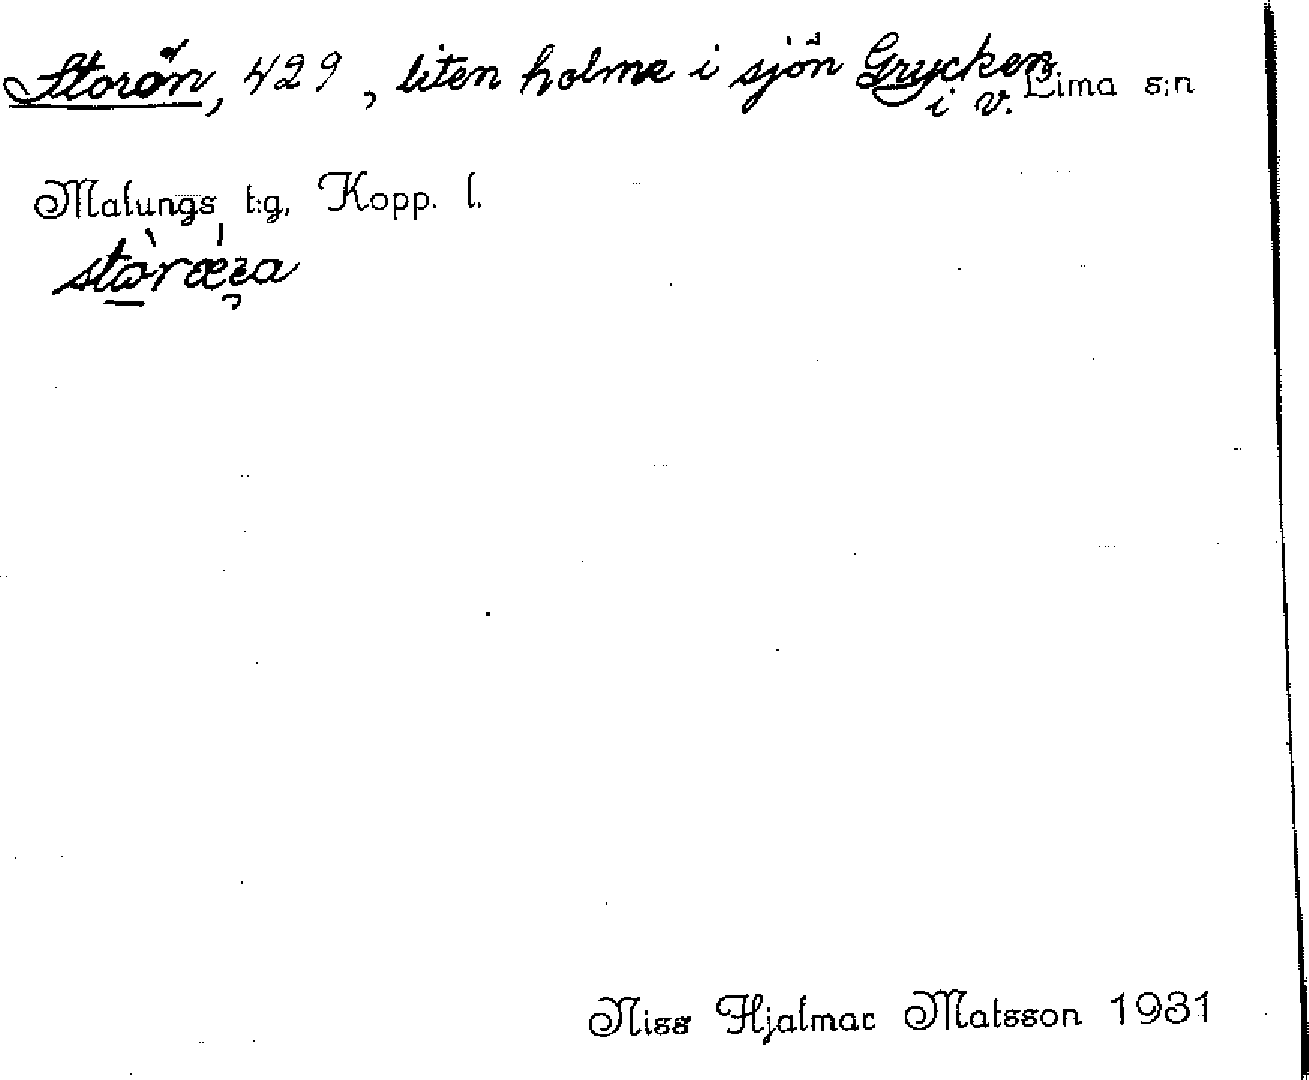 Storön, 429, liten holme i sjön Grycken i v. Lima s:n
Malungs t:g, Kopp. l.
Niss Hjalmar Matsson 1931